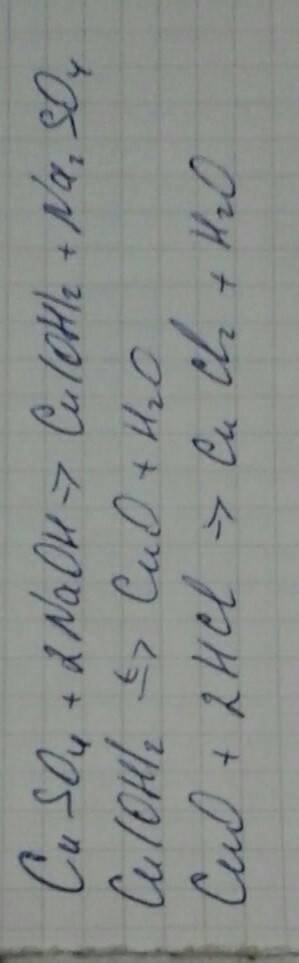 CuSO₄ + 2NaOH => Cu(OH)₂ + Na₂SO₄
Cu(OH)₂ t=> CuO + H₂O
CuO + 2HCl => CuCl₂ + H₂O